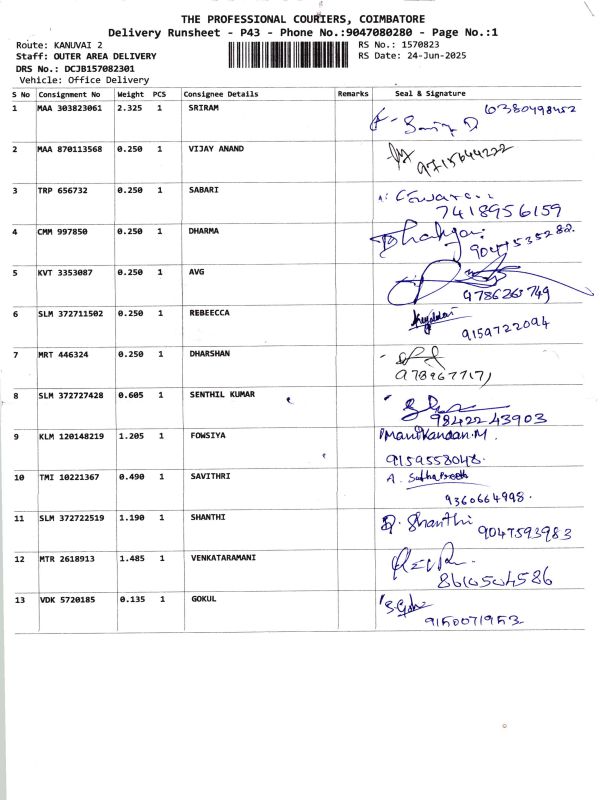 THE PROFESSIONAL COURIERS, COIMBATORE
Delivery Runsheet - P43 - Phone No.:9047080280 - Page No.:1
Route: KANUVAI 2 RS No.: 1570823
Staff: OUTER AREA DELIVERY RS Date: 24-Jun-2025
DRS No.: DCJB157082301
Vehicle: Office Delivery
S No Consignment No Weight PCS Consignee Details Remarks Seal & Signature
1 MAA 303823061 2.325 1 SRIRAM
6380498452
2 MAA 870113568 0.250 1 VIJAY ANAND
9715644222
3 TRP 656732 0.250 1 SABARI
7418956159
4 CMM 997850 0.250 1 DHARMA
9047535282
5 KVT 3353087 0.250 1 AVG
9786263749
6 SLM 372711502 0.250 1 REBEECCA
9159722094
7 MRT 446324 0.250 1 DHARSHAN
8 SLM 372727428 0.605 1 SENTHIL KUMAR
98422 43903
9 KLM 120148219 1.205 1 FOWSIYA Manikandan.M.
9159558048.
10 TMI 10221367 0.490 1 SAVITHRI A.
9360664998.
11 SLM 372722519 1.190 1 SHANTHI Shanthi
9047593983
12 MTR 2618913 1.485 1 VENKATARAMANI
8610504586
13 VDK 5720185 0.135 1 GOKUL
9150071953